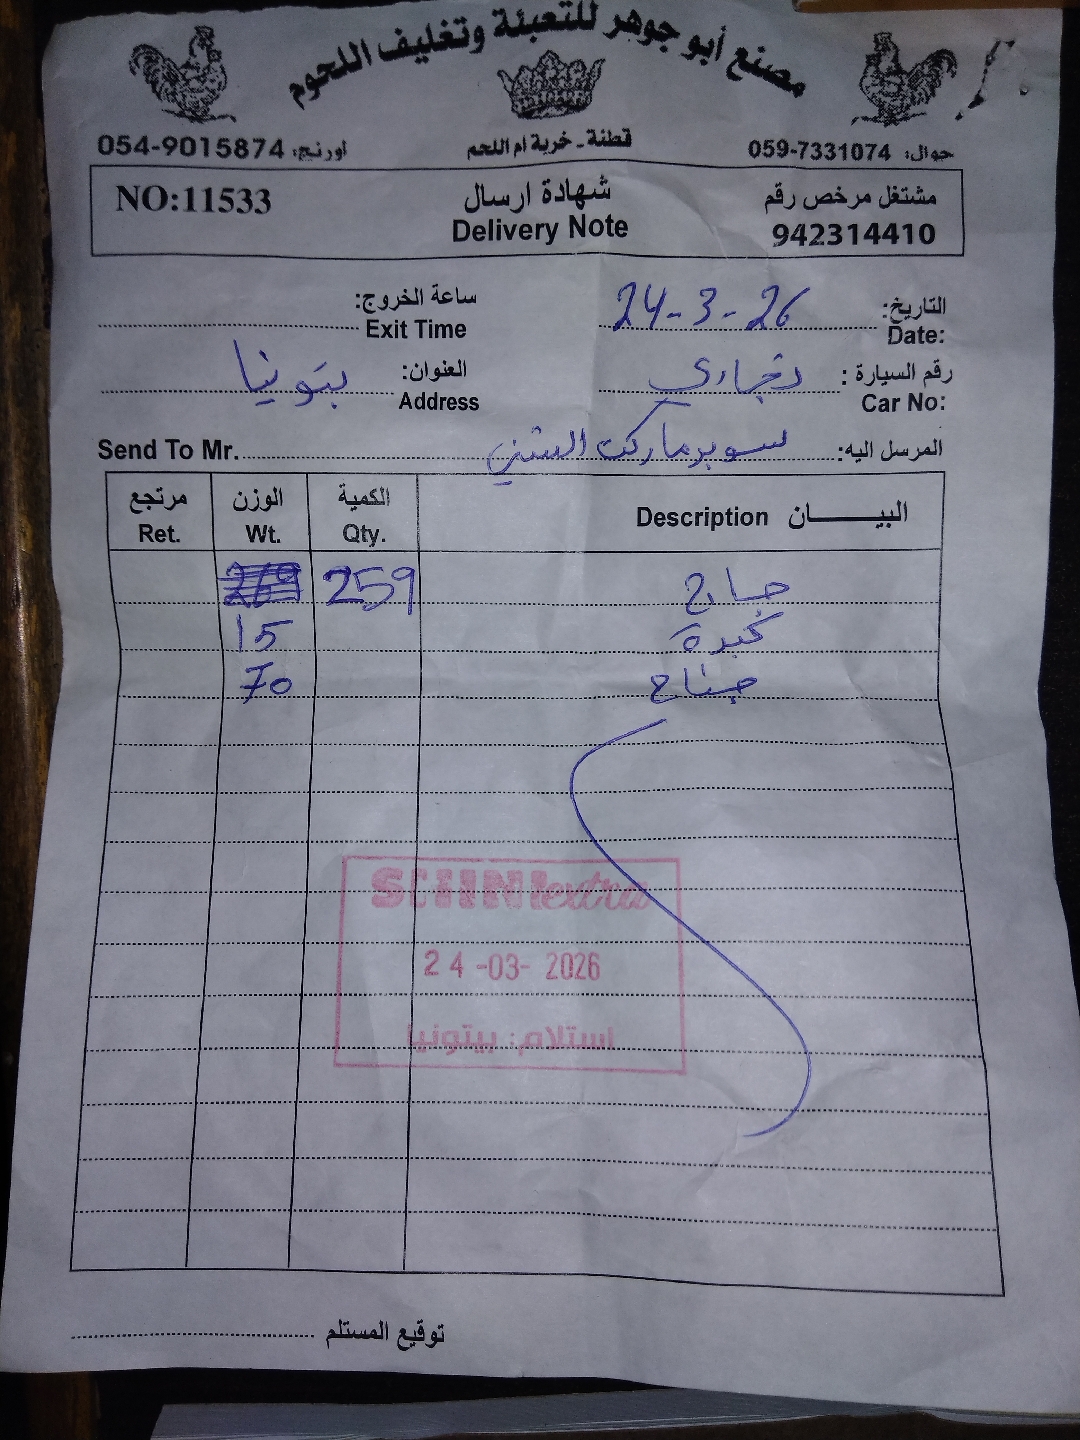 مصنع أبو جوهر للتعبئة وتغليف اللحوم
جوال: 059-7331074
قطنة - خربة ام اللحم
اورنج: 054-9015874
مشتغل مرخص رقم
942314410
شهادة ارسال
Delivery Note
NO:11533
التاريخ: 24-3-26
Date:
ساعة الخروج:
Exit Time
رقم السيارة :
Car No:
العنوان: بتونيا
Address
المرسل اليه: سوبرماركت الشني Send To Mr.
البيــــــان Description
الكمية
Qty.
الوزن
Wt.
مرتجع
Ret.
جاج 259
كبدة 15
جناح 70
extra
24-03-2026
استلام: بيتونيا
توقيع المستلم